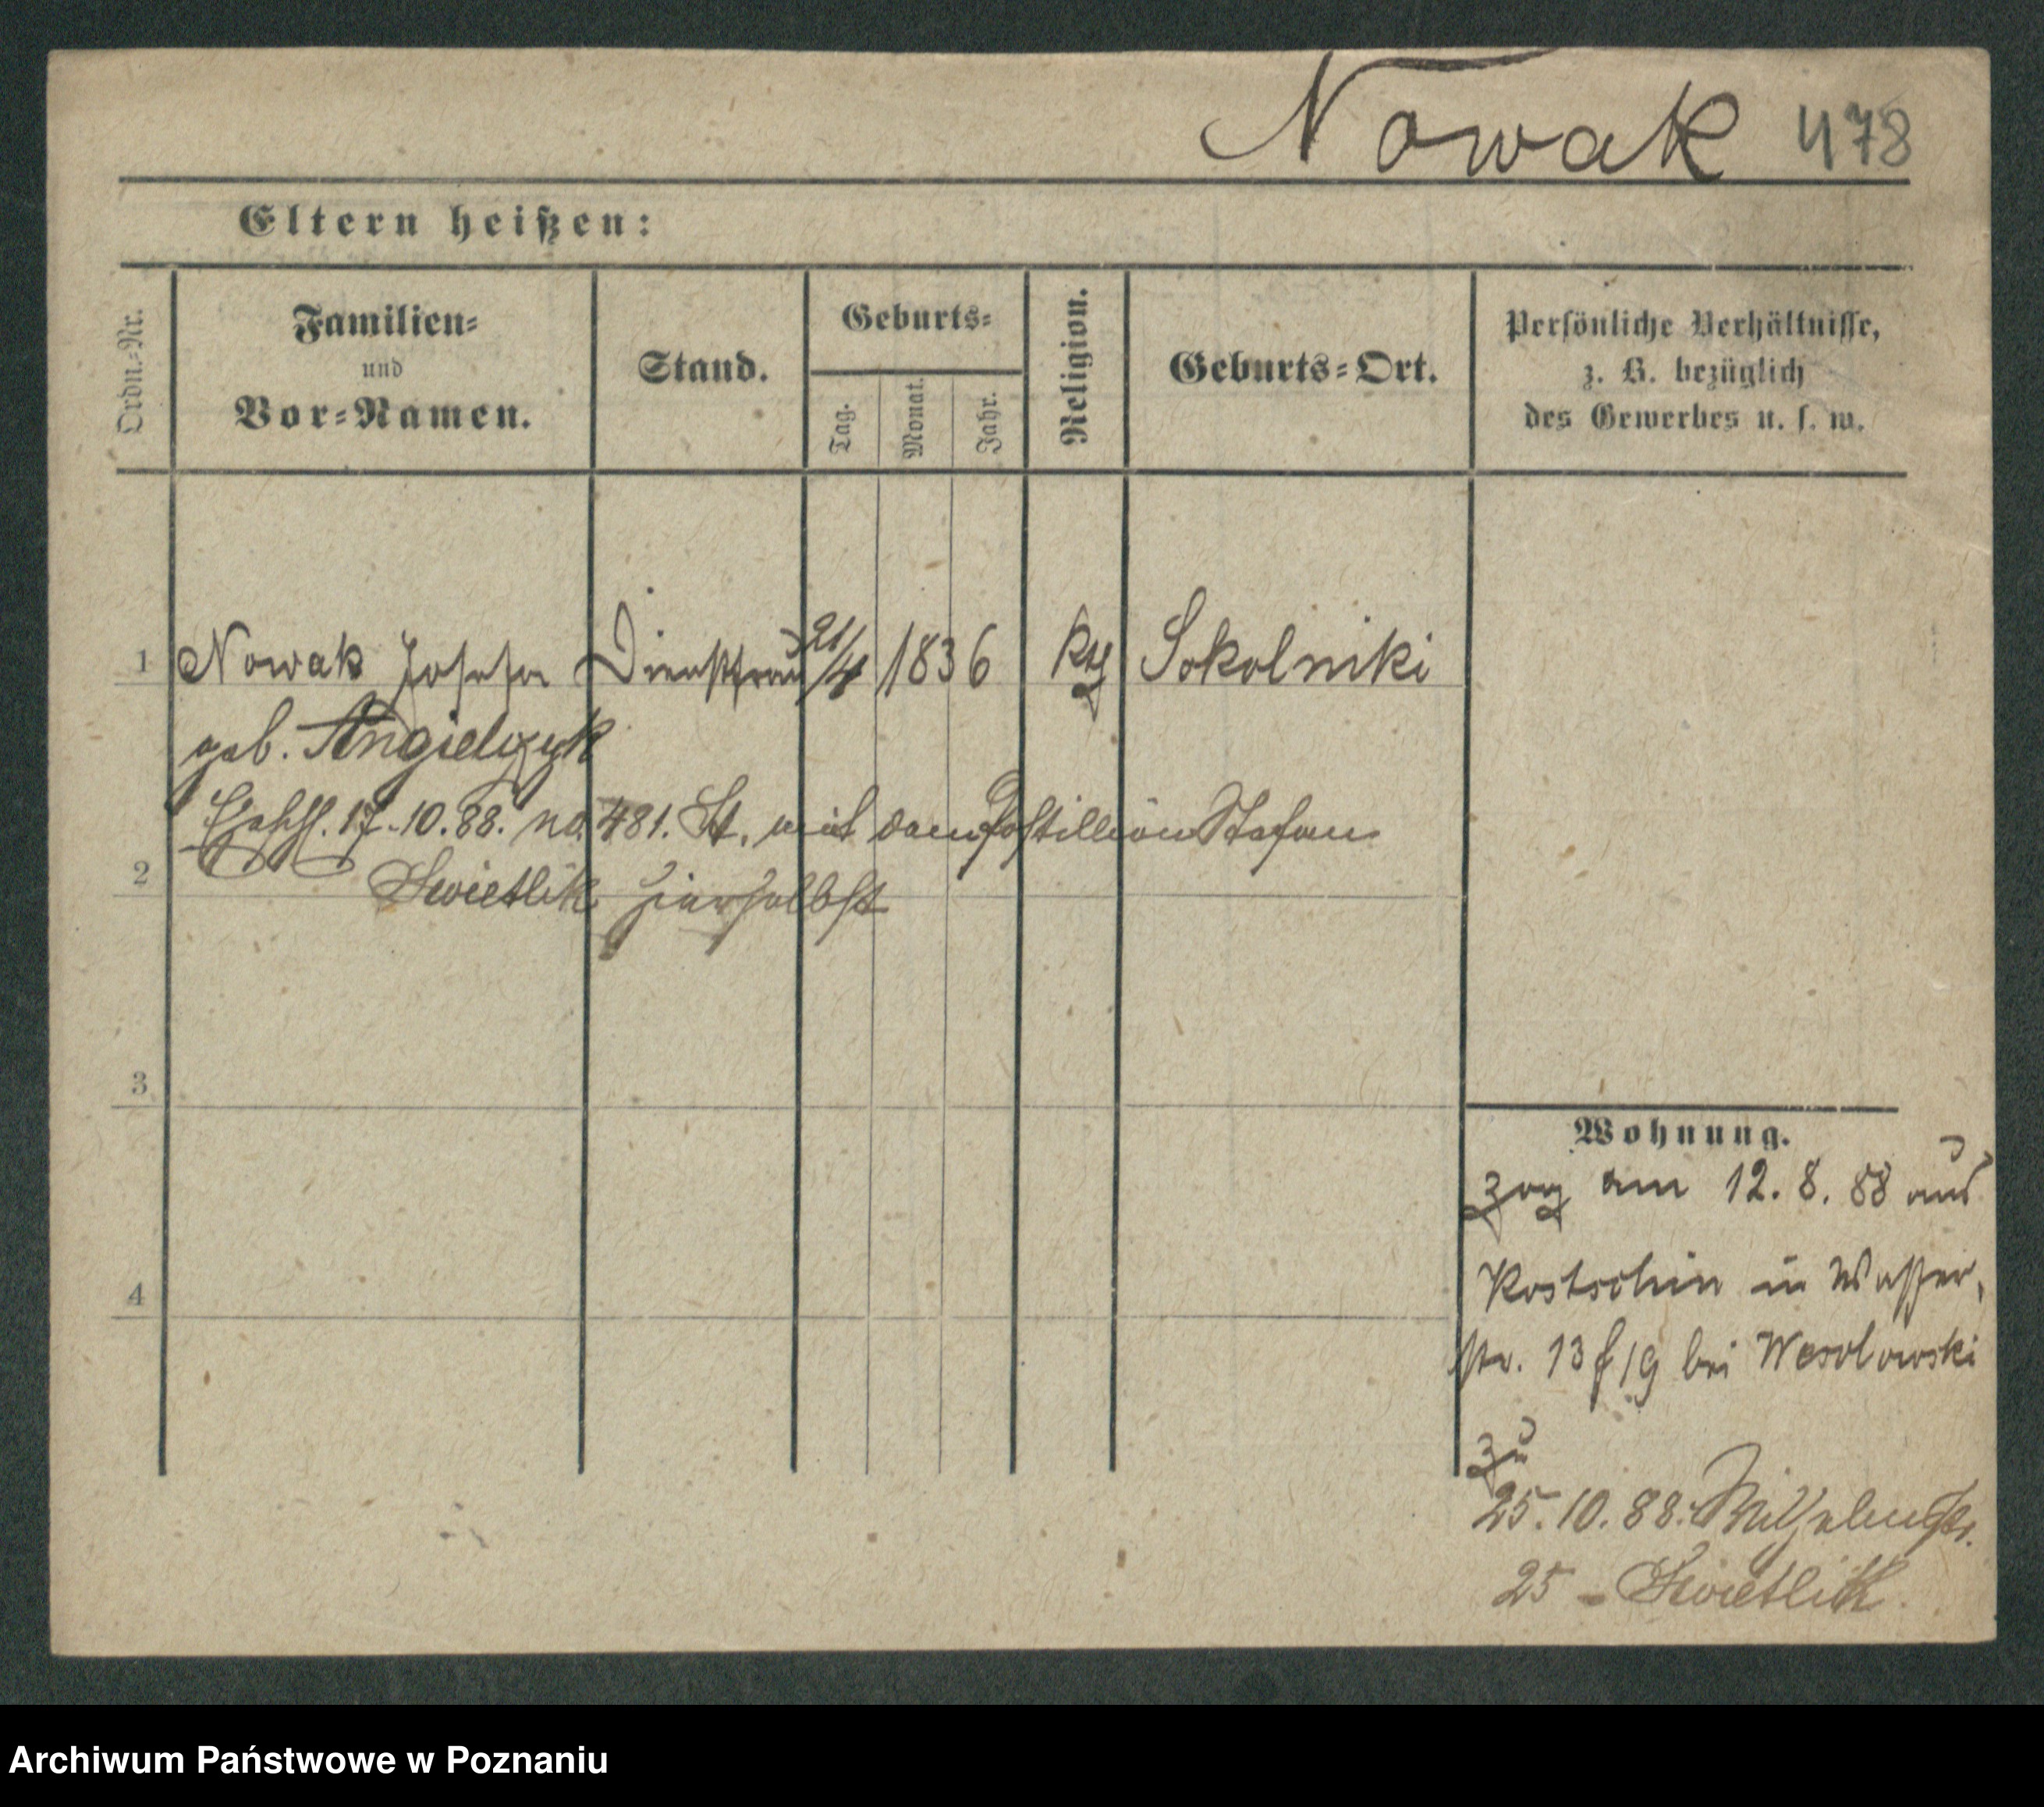 Nowak 478
Eltern heißen:
Ordn.-Nr.
Familien-
und
Vor-Namen.
Stand.
Geburts-
Tag.
Monat.
Jahr.
Religion.
Geburts-Ort.
Persönliche Verhältnisse,
z. B. bezüglich
des Gewerbes u. s. w.
1 Nowak Josefa Dienstfrau 21/4 1836 kth Sokolniki
geb. Angielczyk
Ehehl. 17.10.88. no. 481. St. mit dem Postillion Stefan
2 Swietlik hierselbst
3
4
Wohnung.
zog am 12.8.88 aus
Kostschin in Wasser-
str. 13 f 19 bei Wesolowski
zu
25.10.88. Wilhelmstr.
25 - Swietlik.
Archiwum Państwowe w Poznaniu